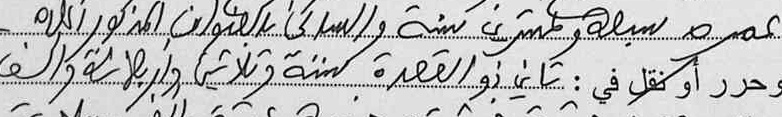 عمره سبعة وعشرين سنة والساكن بالعنوان المذكور أعلاه
وحرر أو نقل في : ثاني ذو القعدة سنة وثلاثين وأربعمائة وألف